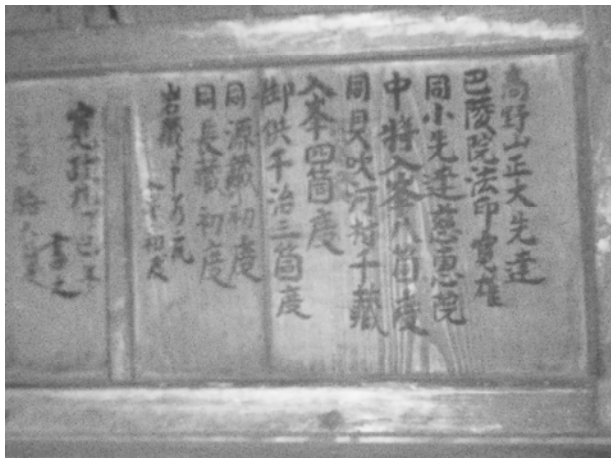 高野山正大先達
巴陵院法印寛雄
同小先達慈憲院
中将入峯八箇度
同貝吹河村千蔵
入峯四箇度
御供千治三箇度
同源蔵初度
同長蔵初度
岩蔵
入峯初度
寛政九丁巳年
書之